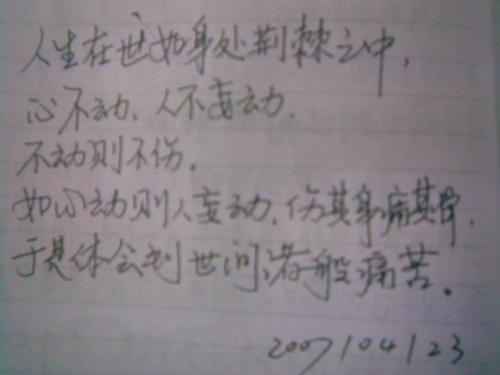 人生在世如身处荆棘之中,
心不动、人不妄动.
不动则不伤.
如心动则人妄动,伤其身痛其骨,
于是体会到世间诸般痛苦.
2007/04/23